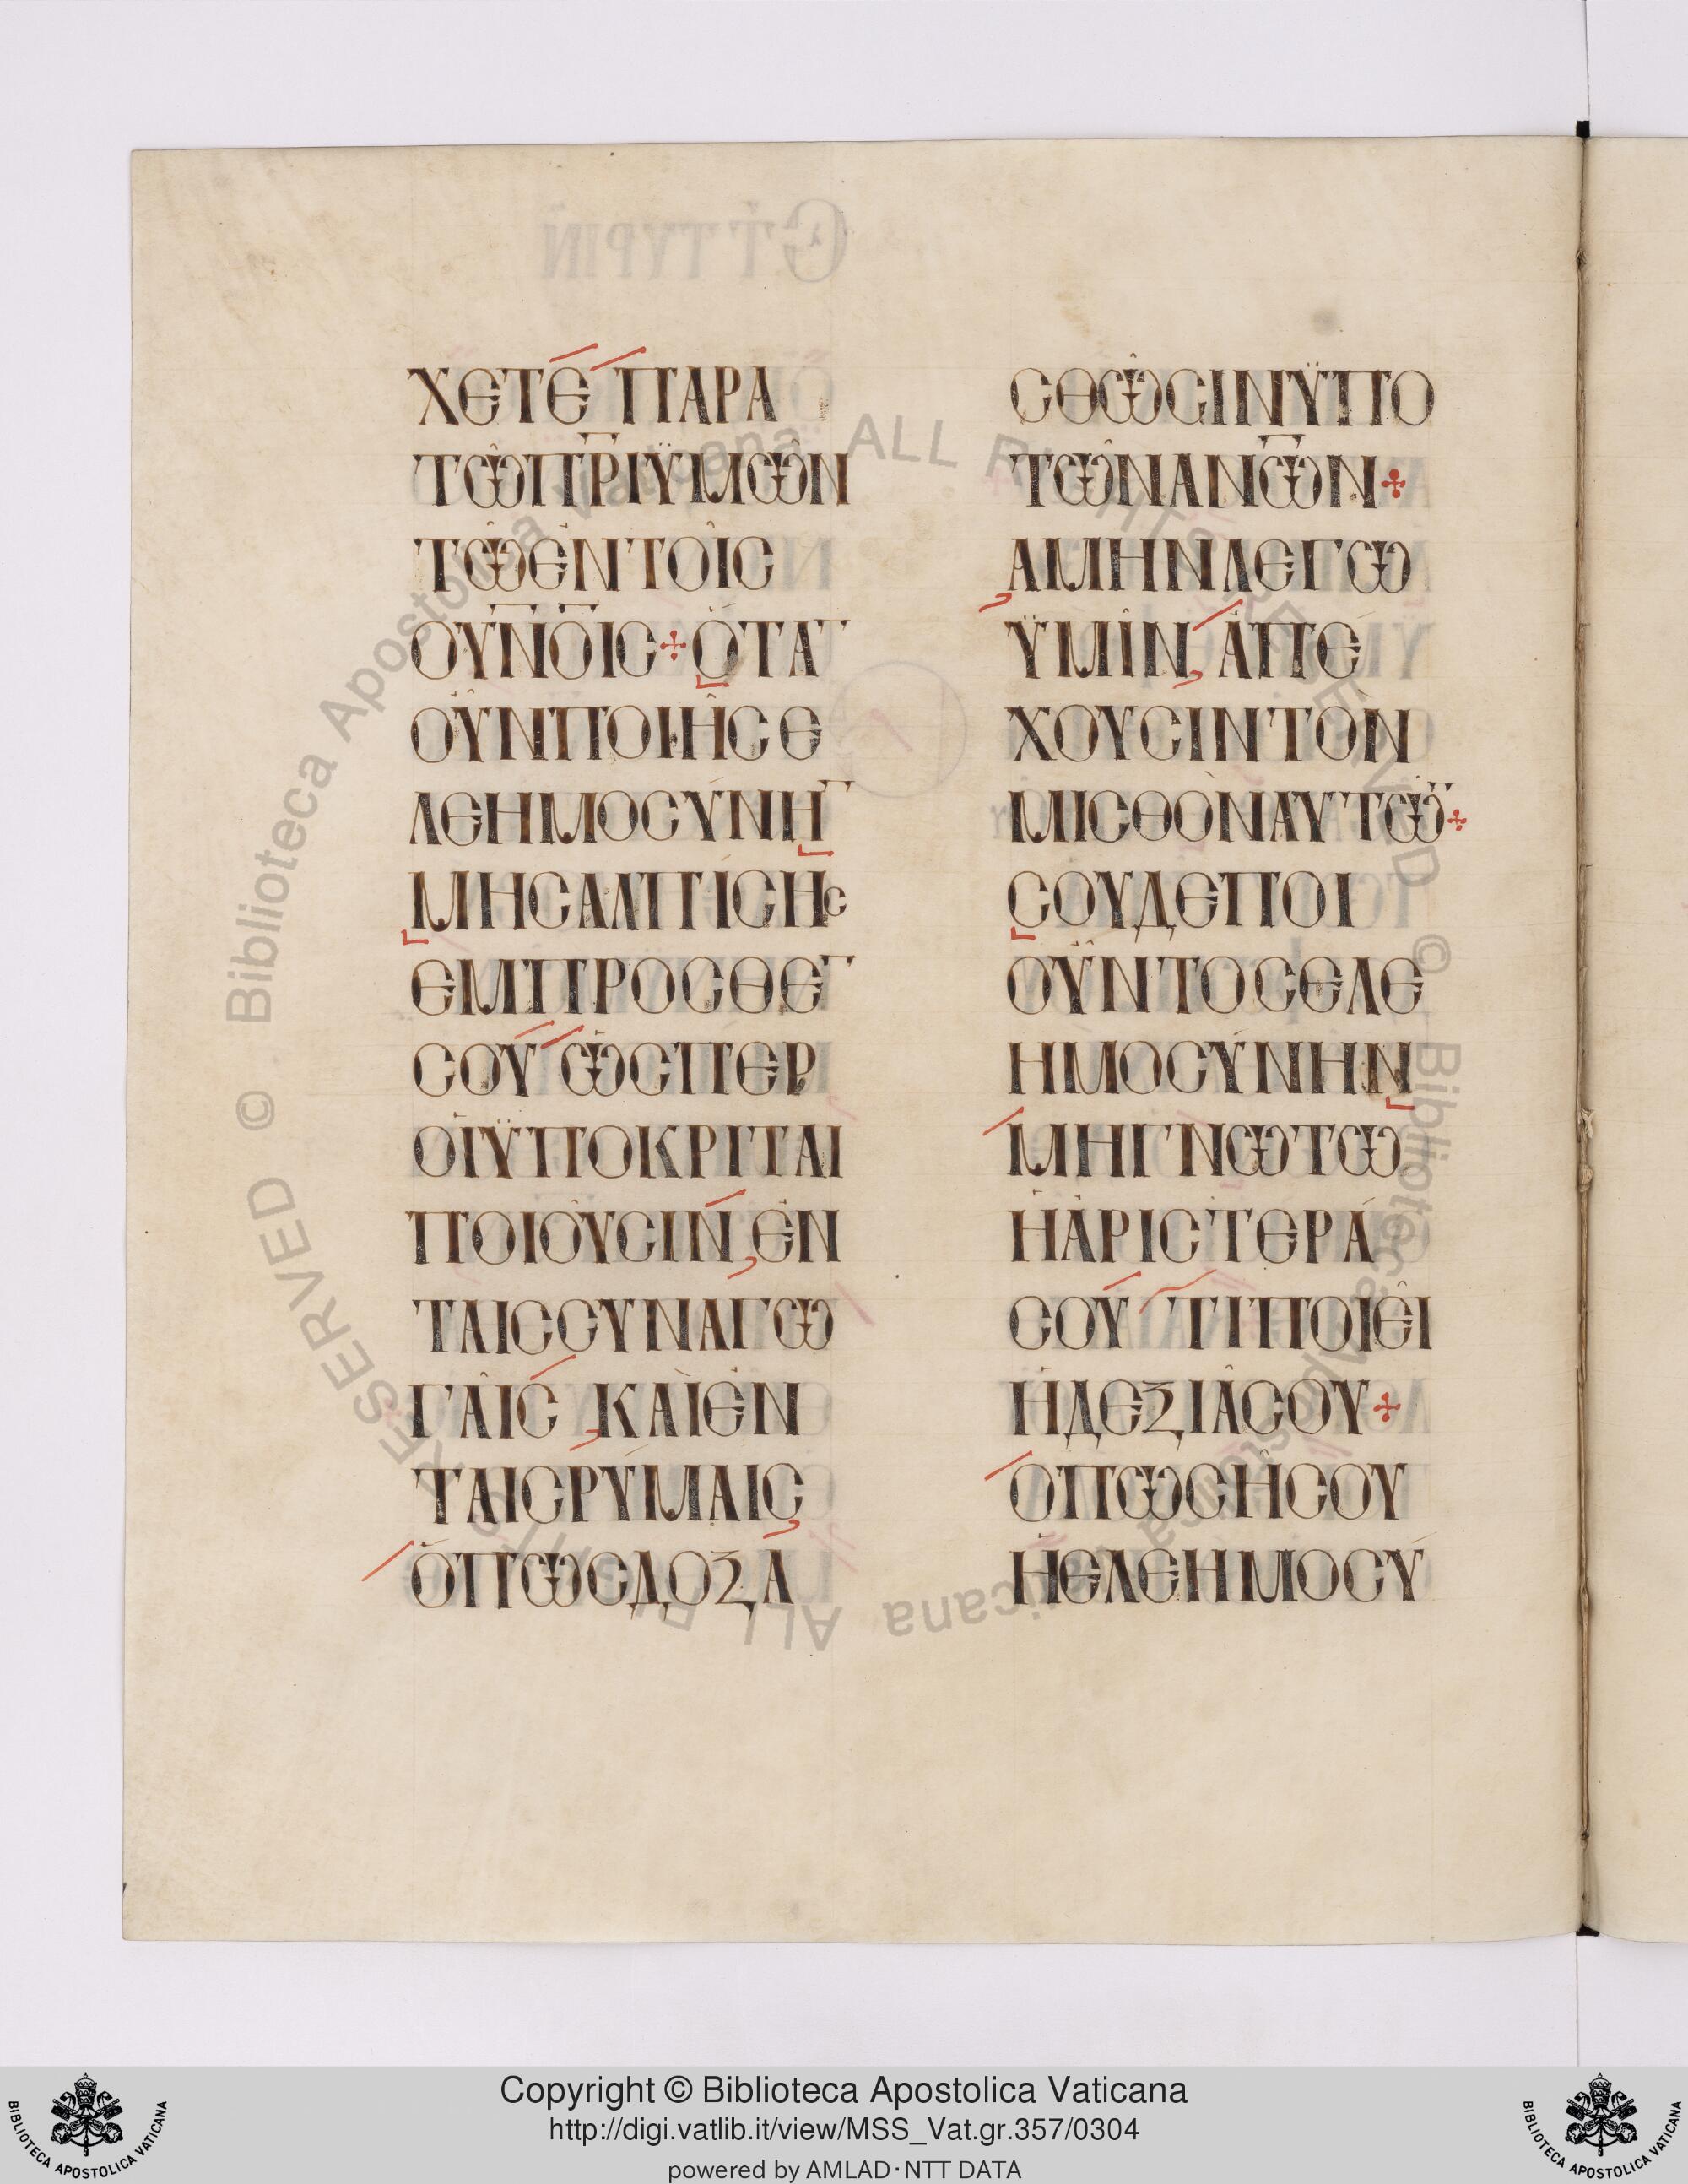 ΧΕΤΕ ΠΑΡΑ
ΤΩΠΡΙΫΜΩΝ
ΤΩΕΝΤΟΙΣ
ΟΥΝΟΙΣ ✣ ΟΤΑ¯
ΟΥΝΠΟΙΗΣΕ
ΛΕΗΜΟΣΥΝΗ¯
ΜΗΣΑΛΠΙΣΗΣ
ΕΜΠΡΟΣΘΕ¯
ΣΟΥ ΩΣΠΕΡ
ΟΙΫΠΟΚΡΙΤΑΙ
ΠΟΙΟΥΣΙΝ, ΕΝ
ΤΑΙΣΣΥΝΑΓΩ
ΓΑΙΣ, ΚΑΙΕΝ
ΤΑΙΣΡΥΜΑΙΣ
ΟΠΩΣΔΟΞΑ
ΣΘΩΣΙΝΫΠΟ
ΤΩΝΑΝΩΝ ✣
ΑΜΗΝΛΕΓΩ
ΫΜΙΝ, ΑΠΕ
ΧΟΥΣΙΝΤΟΝ
ΜΙΣΘΟΝΑΥΤΩ¯ ✣
ΣΟΥΔΕΠΟΙ
ΟΥΝΤΟΣΕΛΕ
ΗΜΟΣΥΝΗΝ
ΜΗΓΝΩΤΩ
ΗΑΡΙΣΤΕΡΑ
ΣΟΥ ΤΙΠΟΙΕΙ
ΗΔΕΞΙΑΣΟΥ ✣
ΟΠΩΣΗΣΟΥ
ΗΕΛΕΗΜΟΣΥ
© Biblioteca Apostolica Vaticana ALL RIGHTS RESERVED © Biblioteca Apostolica Vaticana ALL RIGHTS RESERVED
Copyright © Biblioteca Apostolica Vaticana
http://digi.vatlib.it/view/MSS_Vat.gr.357/0304
powered by AMLAD·NTT DATA
BIBLIOTECA APOSTOLICA VATICANA
BIBLIOTECA APOSTOLICA VATICANA